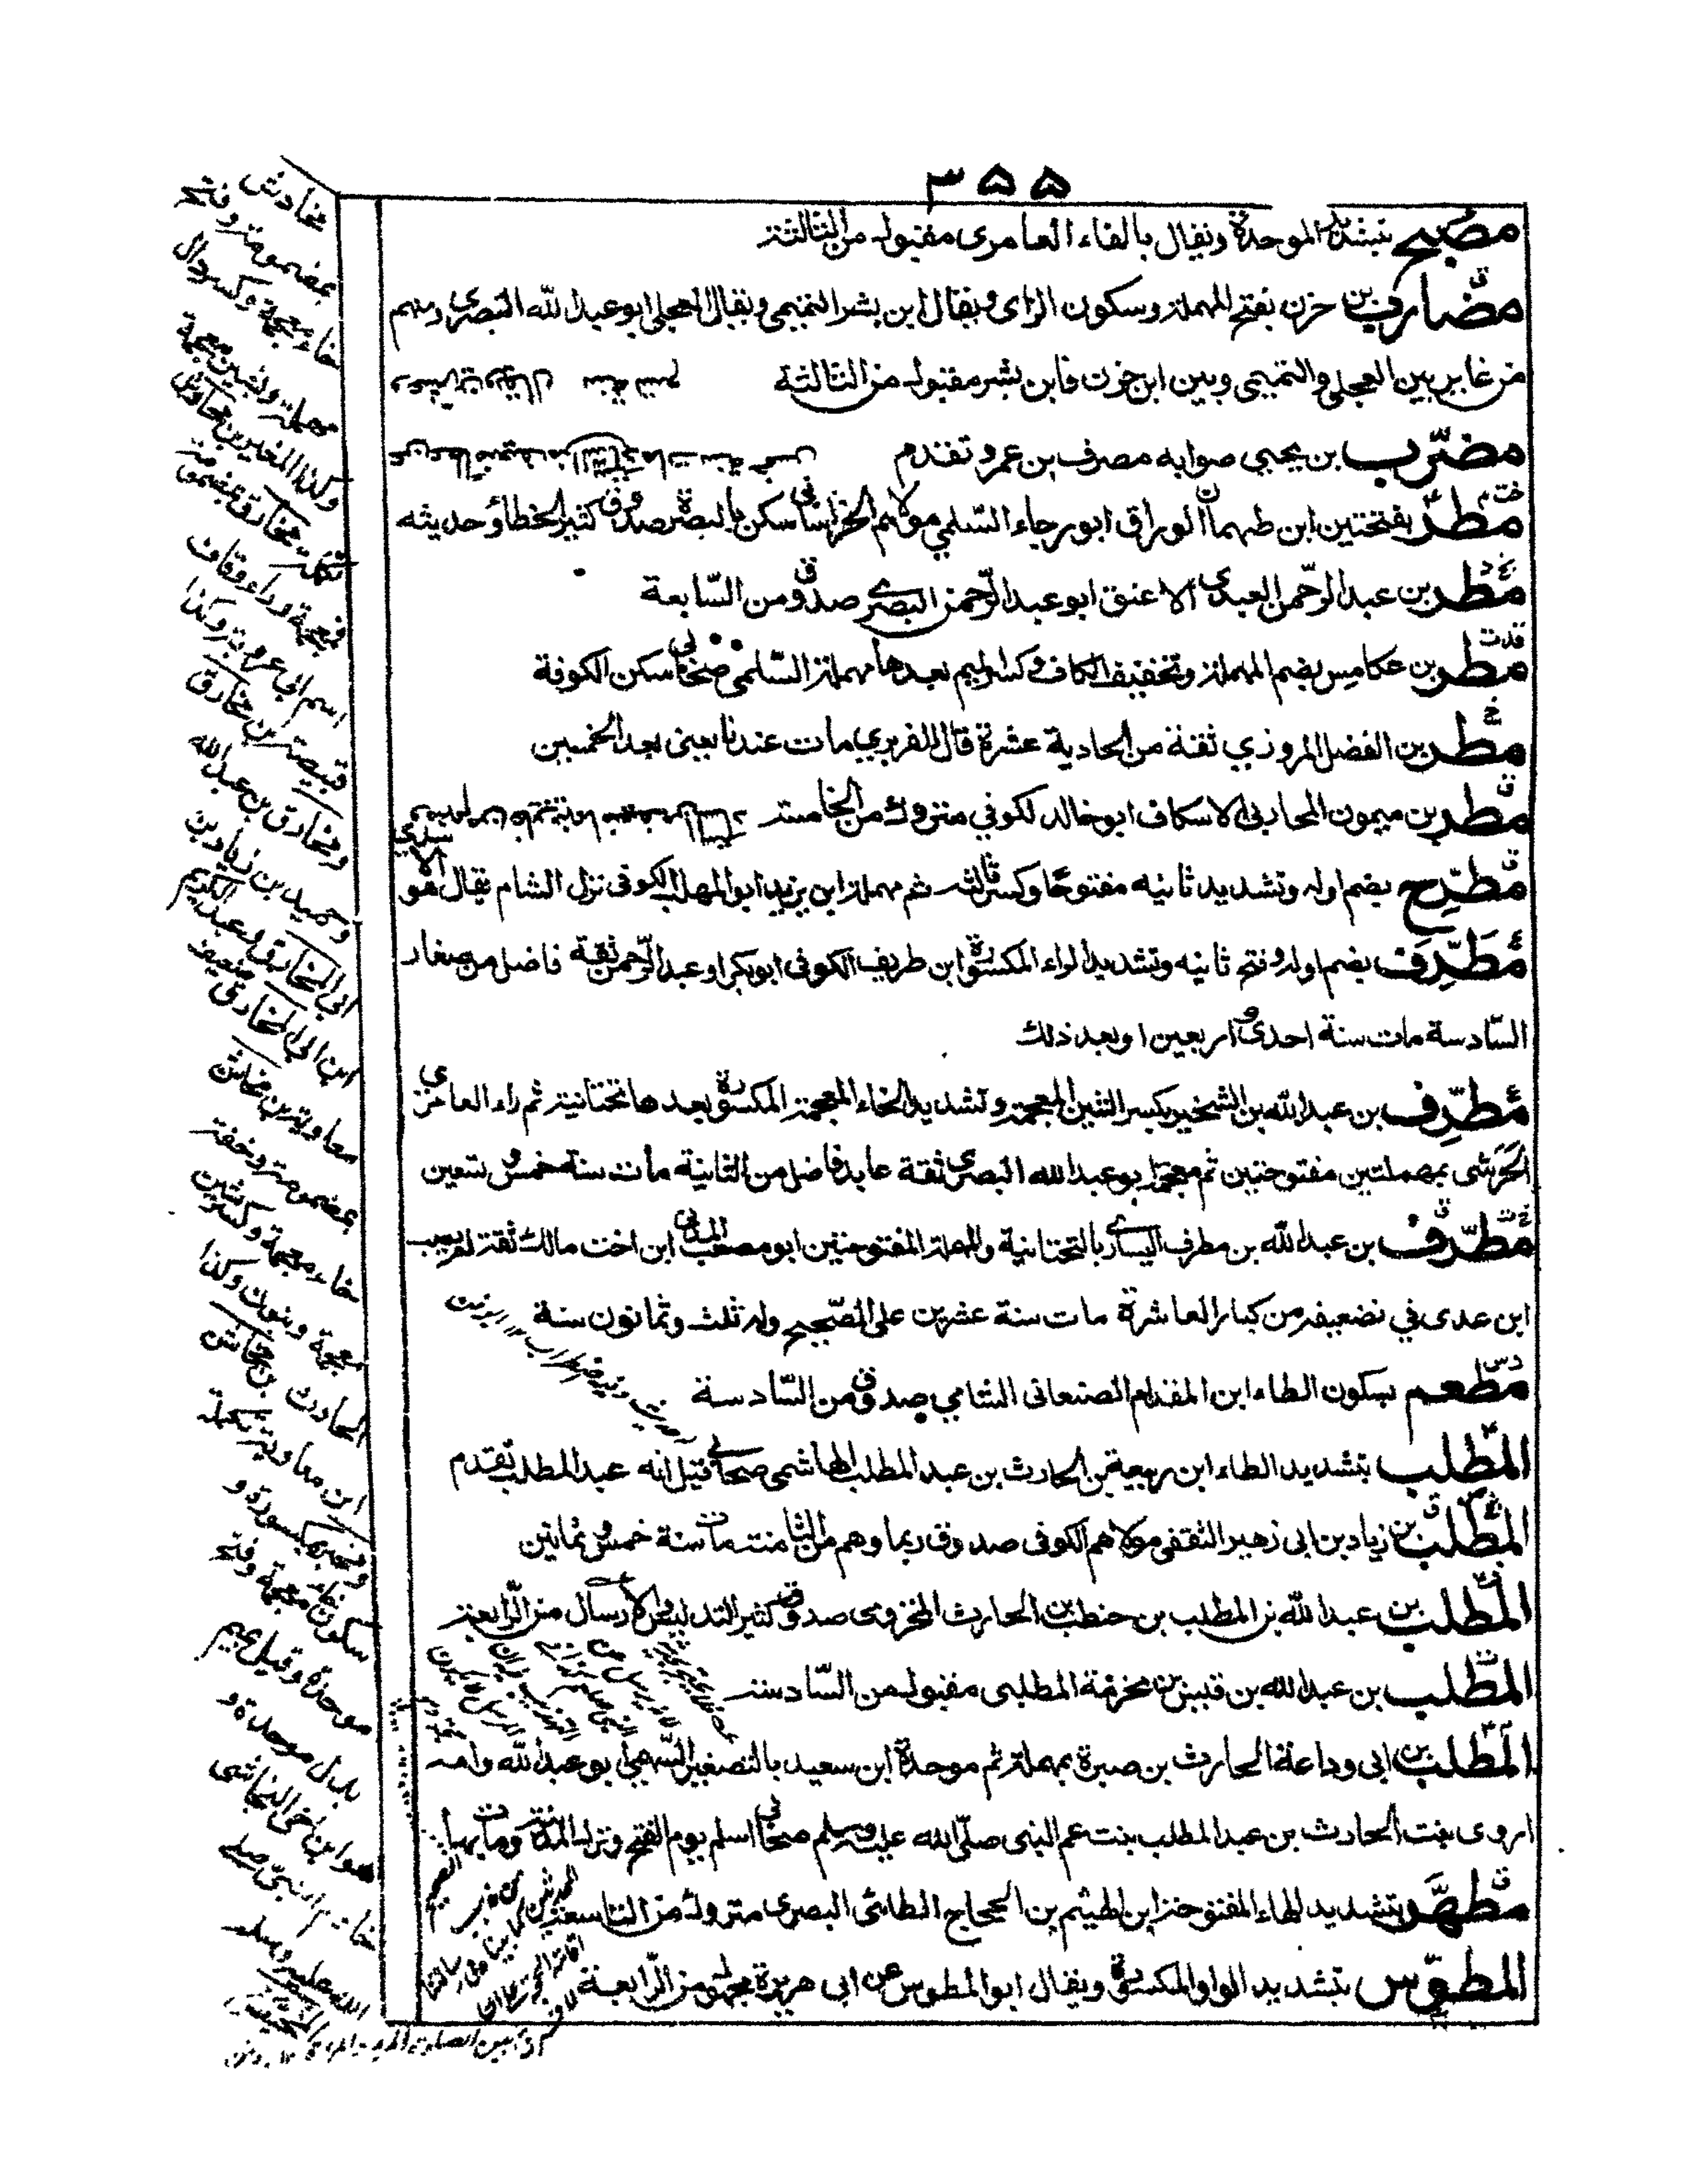 ٣٥٥
مصبح بتشديد الموحدة ويقال بالفاء العامري مقبول من الثالثة
مضارب بن حزن بفتح المهملة وسكون الزاى ويقال ابن بشر التميمي ويقال العجلي ابو عبد الله البصري ومنهم
من غاير بين العجلي والتميمي وبين ابن حزن فابن بشر مقبول من الثالثة
مضرب بن يحيى صوابه مصرف بن عمرو تقدم
مطر بفتحتين ابن طهمان الوراق ابو رجاء السلمي مولاهم الخراساني سكن بالبصرة صدوق كثير الخطأ وحديثه
مطر بن عبد الرحمن العبدى الاعنق ابو عبد الرحمن البصري صدوق من السابعة
مطر بن عكامس بضم المهملة وتخفيف الكاف وكسر الميم بعدها مهملة السلمي صحابي سكن الكوفة
مطر بن الفضل المروزي ثقة من الحادية عشرة قال الفربري مات عندنا يعنى بعد الخمسين
مطر بن ميمون المحاربي الاسكاف ابو خالد الكوفي متروك من الخامسة
مطرح بضم اوله وتشديد ثانيه مفتوحا وكسر ثالثه ثم مهملة ابن يزيد ابو المهلب الكوفى نزل الشام يقال هو الاسدي
مطرف بضم اوله وفتح ثانيه وتشديد الراء المكسورة ابن طريف الكوفى ابو بكر او عبد الرحمن ثقة فاضل من صغار
السادسة مات سنة احدى واربعين او بعد ذلك
مطرف بن عبد الله بن الشخير بكسر الشين المعجمة وتشديد الخاء المعجمة المكسورة بعدها تحتانية ثم راء العامري
الحرشى بمهملتين مفتوحتين ثم معجمة ابو عبد الله البصرى ثقة عابد فاضل من الثانية مات سنة خمس وتسعين
مطرف بن عبد الله بن مطرف اليساري بالتحتانية والمهملة المفتوحتين ابو مصعب المدني ابن اخت مالك ثقة لم يصب
ابن عدى في تضعيفه من كبار العاشرة مات سنة عشرين على الصحيح وله ثلث وثمانون سنة
مطعم بسكون الطاء ابن المقدام الصنعانى الشامي صدوق من السادسة
المطلب بتشديد الطاء ابن ربيعة بن الحارث بن عبد المطلب الهاشمى صحابي قيل انه عبد المطلب تقدم
المطلب بن زياد بن ابى زهير الثقفى مولاهم الكوفى صدوق ربما وهم من الثامنة مات سنة خمس وثمانين
المطلب بن عبد الله بن المطلب بن حنطب بن الحارث المخزومى صدوق كثير التدليس والارسال من الرابعة
المطلب بن عبد الله بن قيس بن مخرمة المطلبى مقبول من السادسة
المطلب بن ابى وداعة الحارث بن صبرة بمهملة ثم موحدة ابن سعيد بالتصغير السهمي ابو عبد الله وامه
اروى بنت الحارث بن عبد المطلب بنت عم النبى صلى الله عليه وسلم صحابي اسلم يوم الفتح ونزل المدينة ومات بها
مطهر بتشديد الهاء المفتوحة ابن الهيثم بن الحجاج الطائى البصرى متروك من التاسعة
المطوس بتشديد الواو المكسورة ويقال ابو المطوس عن ابى هريرة مجهول من الرابعة
مخادش
بمضمومة وفتح
خاء معجمة وكسر دال
مهملة وبشين معجمة
وكذا المغيرة بن مخادش
تكملة مخارق بمضمومة
فمعجمة وراء وقاف
اسم ابى عروبة وكذا
قبيصة بن مخارق
ومخارق بن عبد الله
وحميد بن زياد بن
ابي المخارق وعبد الكريم
ابن ابي المخارق ضعيف
معاوية بن مخاشن
بمضمومة وخفة
خاء معجمة وكسر شين
معجمة وبنون وكذا
الحارث بن مخاشن
ابن معاوية تكملة
ومخبر بمكسورة و
سكون خاء معجمة وفتح
موحدة وقيل بميم
بدل موحدة و
هو ابن اخى النجاشى
خادم النبى صلى
الله عليه وسلم